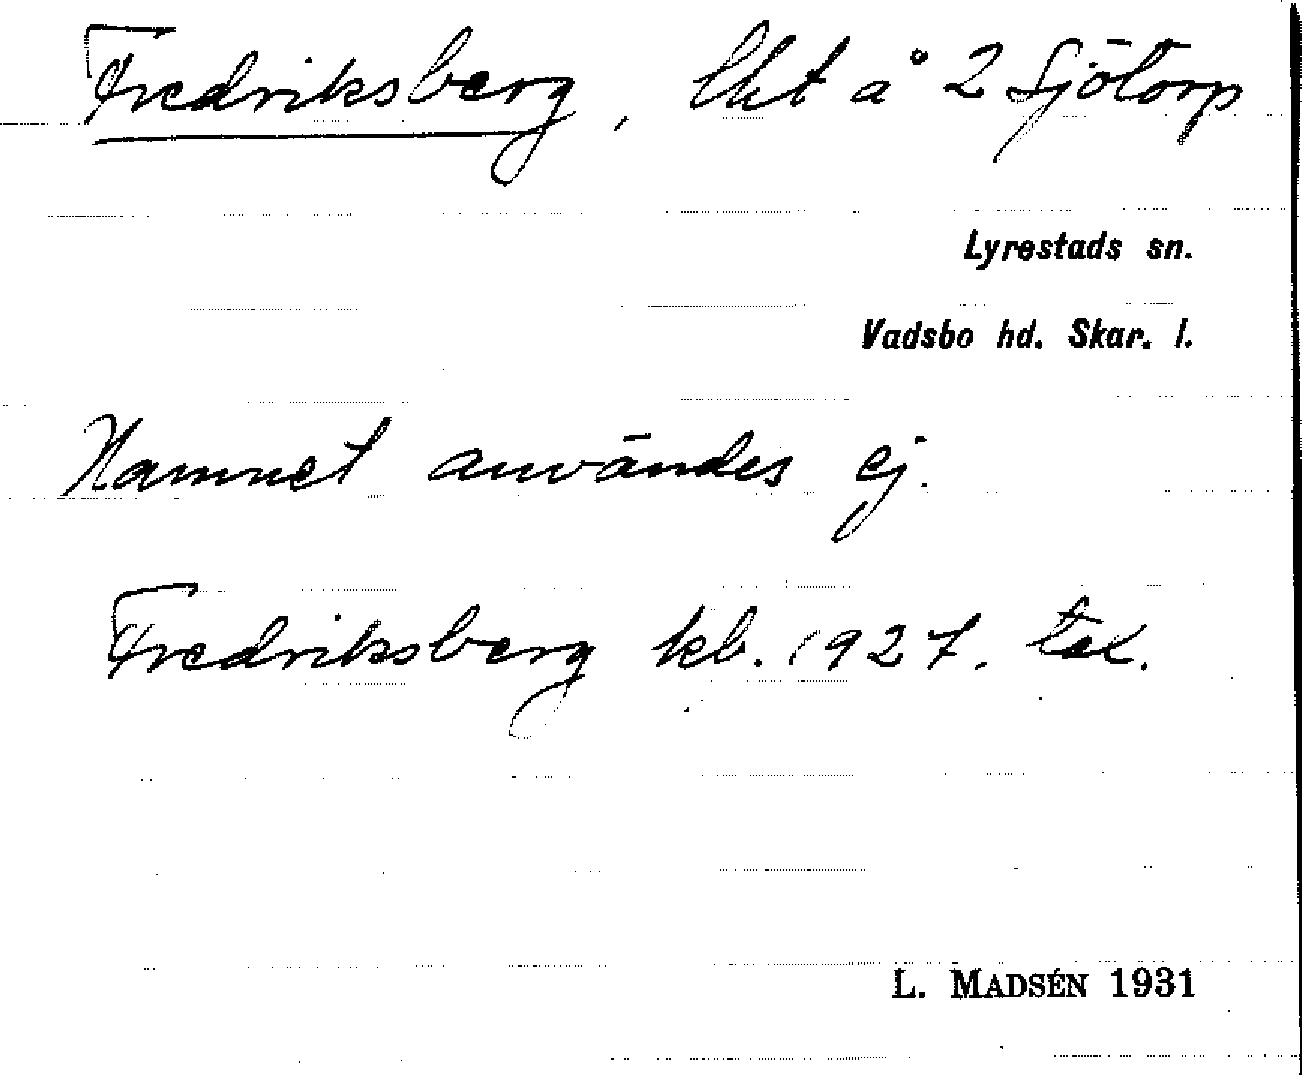 Fredriksberg, lht å 2 Sjötorp
Lyrestads sn.
Vadsbo hd. Skar. l.
Namnet användes ej.
Fredriksberg kb. 1927.
L. MADSÉN 1931